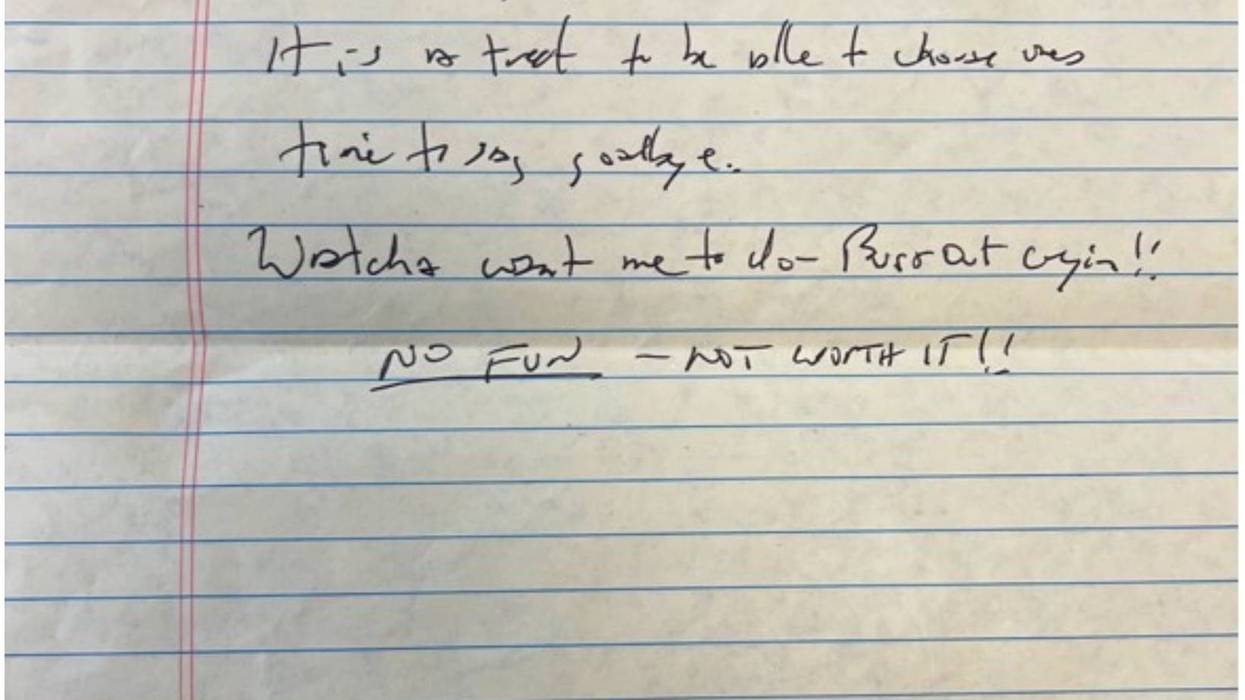 It is a treat to be able to choose ones
time to say goodbye.
Watcha want me to do- Burst out cryin!!
NO FUN - NOT WORTH IT!!